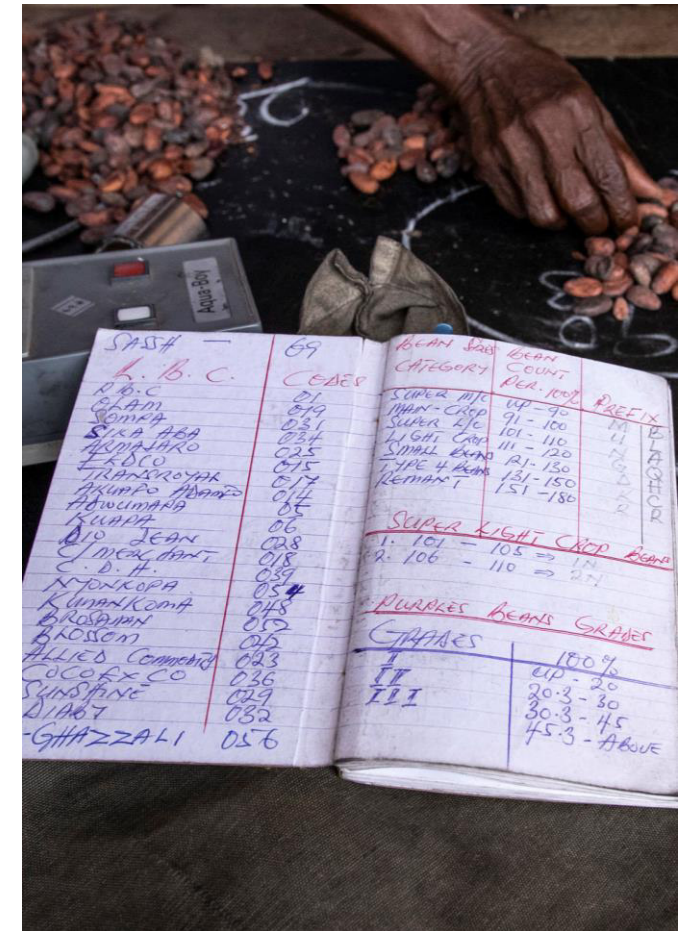 Aqua-Boy
SASSH — 69
L.B.C. CODES
P.B.C 01
OLAM 019
SOMPA 031
SIKA ABA 034
ARMAJARO 025
EKOCO 015
TRANSROYAL 017
AKUAPO ADAMFO 014
ADWUMAPA 05
KUAPA 06
DIO JEAN 028
C/MERCHANT 018
C.D.H. 039
NYONKOPA 054
KUMANKOMA 048
BROSAMAN 052
BLOSSOM 042
ALLIED COMMODITY 023
COCOEXCO 036
SUNSHINE 029
DIABY 032
-GHAZZALI 056
BEAN SIZES BEAN
CATEGORY COUNT
PER. 100% PREFIX
SUPER M/C UP - 90
MAIN-CROP 91 - 100 M
SUPER L/C 101 - 110 U
LIGHT CROP 111 - 120 N
SMALL BEANS 121 - 130 G
TYPE 4 BEANS 131 - 150
REMANT 151 - 180 R
SUPER LIGHT CROP BEANS
1. 101 - 105 ⇒ 1N
2. 106 - 110 ⇒ 2N
PURPLES BEANS GRADES
GRADES 100%
I UP - 20
II 20.3 - 30
III 30.3 - 45
45.3 - ABOVE